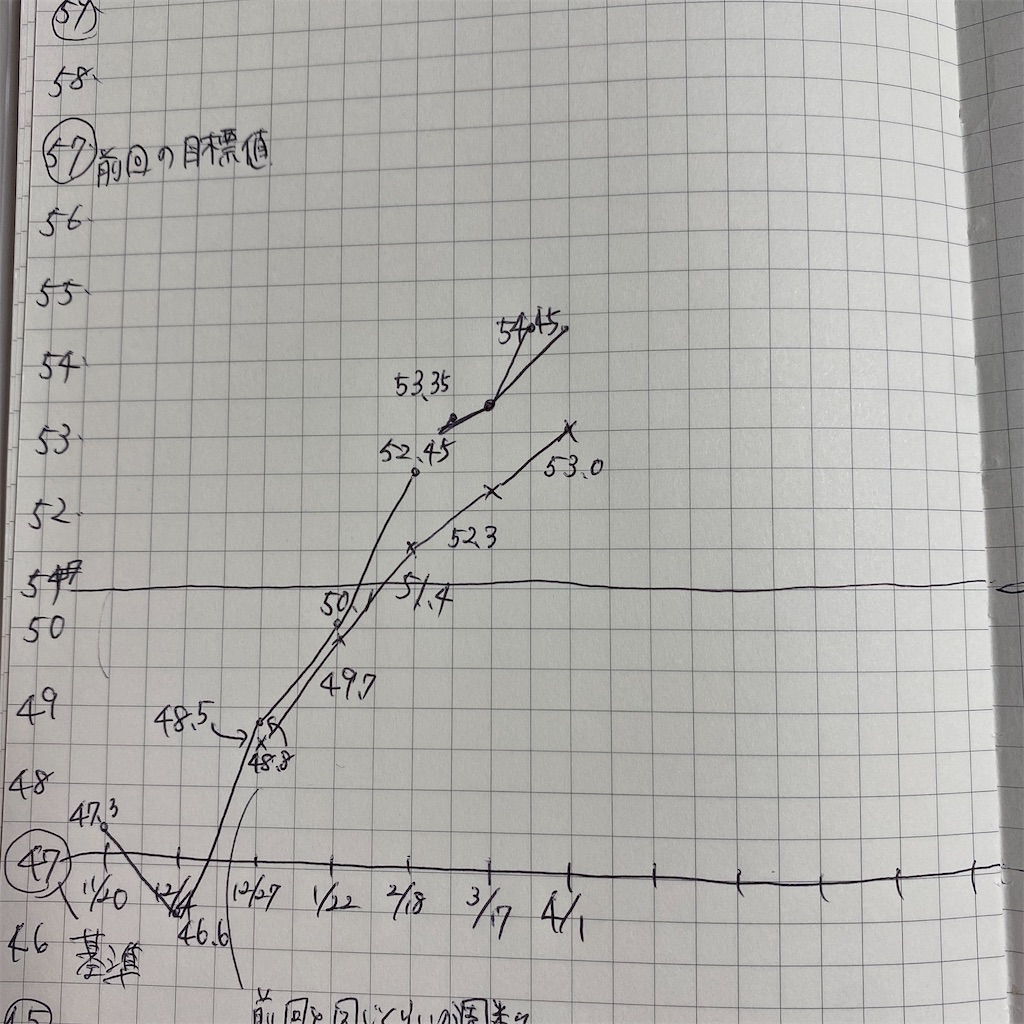 59
58
57 前回の目標値
56
55
54.45
54
53.35
53
52.45
53.0
52
52.3
51.4
50.1
50
49.7
49
48.5
48.8
48
47.3
47
11/20 12/27 1/22 2/18 3/17 4/1
46.6
46 基準
45